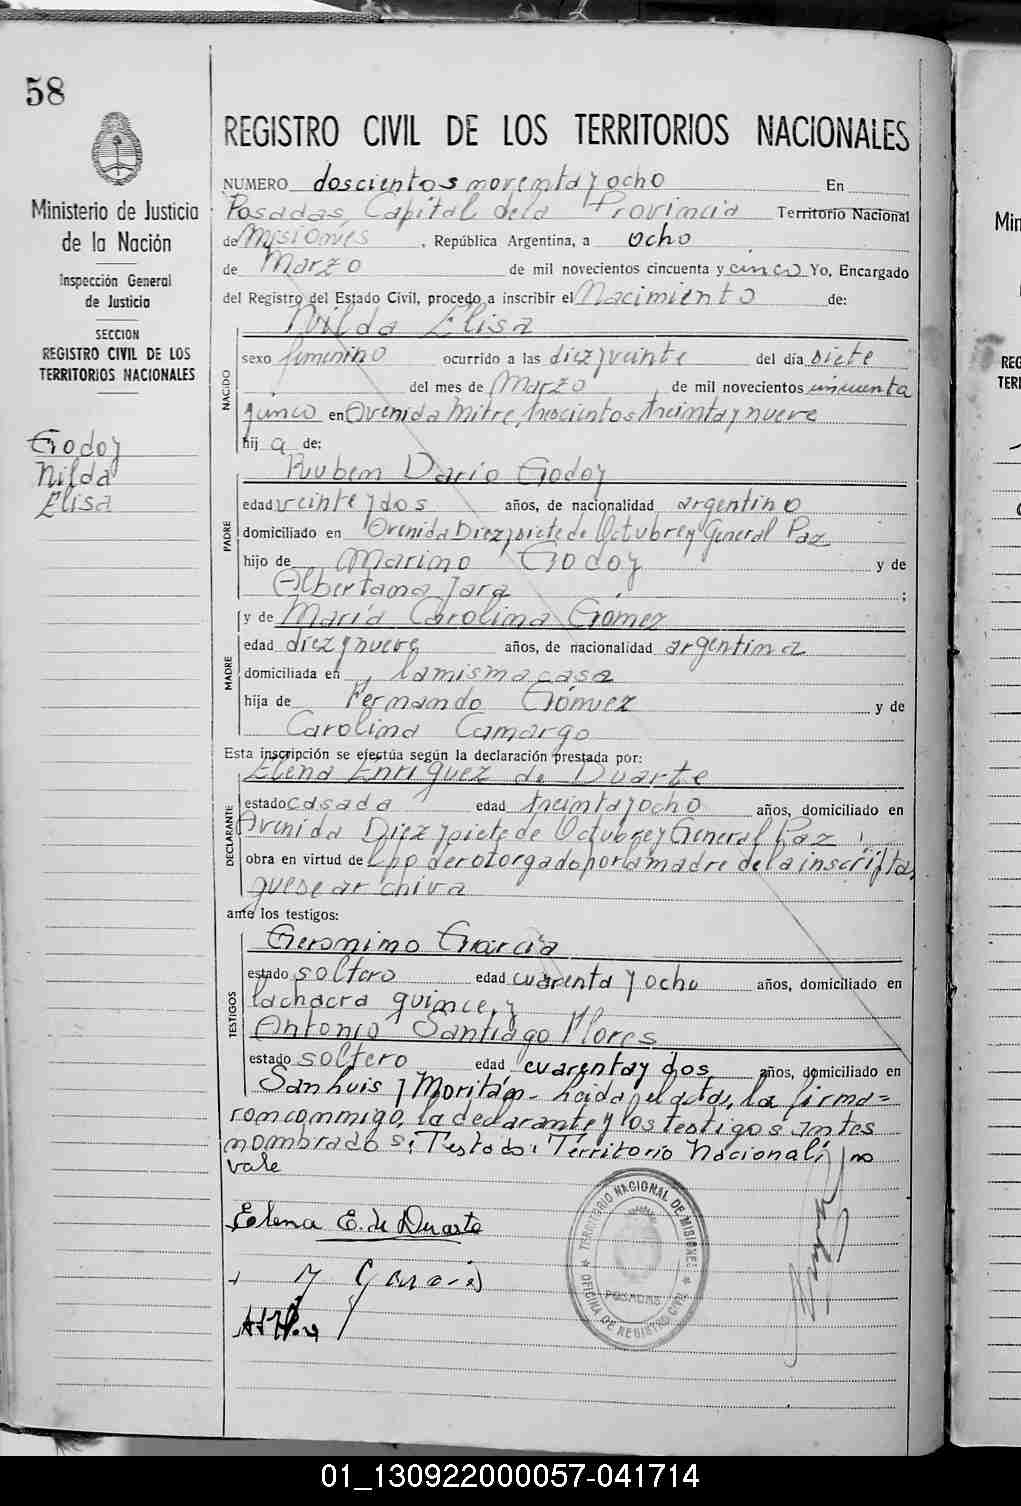 58
Ministerio de Justicia
de la Nación
Inspección General
de Justicia
SECCION
REGISTRO CIVIL DE LOS
TERRITORIOS NACIONALES
Godoy
Nilda
Elisa
REGISTRO CIVIL DE LOS TERRITORIOS NACIONALES
NUMERO doscientos noventa y ocho En
Posadas, Capital de la Provincia Territorio Nacional
de Misiones, República Argentina, a ocho
de Marzo de mil novecientos cincuenta y cinco Yo, Encargado
del Registro del Estado Civil, procedo a inscribir el Nacimiento de:
Nilda Elisa
NACIDO
sexo femenino ocurrido a las diez y veinte del día siete
del mes de Marzo de mil novecientos cincuenta
y cinco en Avenida Mitre, trescientos treinta y nueve
hij a de:
Ruben Dario Godoy
PADRE
edad veinte y dos años, de nacionalidad argentino
domiciliado en Avenida Diez y siete de Octubre y General Paz
hijo de Marino Godoy y de
Albertana Jara ;
y de María Carolina Gómez
MADRE
edad diez y nueve años, de nacionalidad argentina
domiciliada en la misma casa
hija de Fernando Gómez y de
Carolina Camargo
Esta inscripción se efectúa según la declaración prestada por:
Elena Enriquez de Duarte
DECLARANTE
estado casada edad treinta y ocho años, domiciliado en
Avenida Diez y siete de Octubre y General Paz
obra en virtud de poder otorgado por la madre de la inscripta,
que se archiva
ante los testigos:
Geronimo García
TESTIGOS
estado soltero edad cuarenta y ocho años, domiciliado en
la chacra quince, y
Antonio Santiago Flores
estado soltero edad cuarenta y dos años, domiciliado en
San Luis y Moritán- Leida el acta, la firma=
ron conmigo, la declarante y los testigos antes
nombrados: Testado: Territorio Nacional: no
vale
Elena E. de Duarte
TERRITORIO NACIONAL DE MISIONES
POSADAS
OFICINA DE REGISTRO CIVIL
Min
REG
TERI
01_130922000057-041714